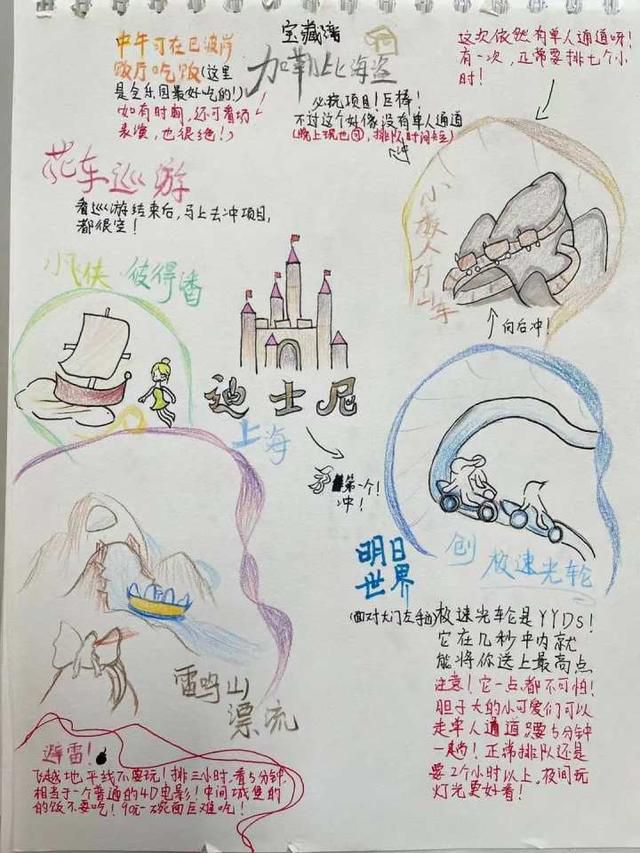 中午可在巴波岸
饭厅吃饭(这里
是全乐园最好吃的!)
如有时间,还可看场
表演,也很绝!)
宝藏湾
加勒比海盗
必玩项目!巨棒!
不过这个好像没有单人通道
这次依然有单人通道呀!
有一次,正常要排七个小
时!
花车巡游
看巡游结束后,马上去冲项目,
都很空!
小飞侠 彼得潘
小矮人矿山车
向后冲!
迪士尼
上海
第一个!
冲!
明日
世界
创 极速光轮
(面对大门左手边)
极速光轮是YYDS!
它在几秒中内就
能将你送上最高点
注意!它一点都不可怕!
胆子大的小可爱们可以
走单人通道只要5分钟
一趟!正常排队还是
要2个小时以上,夜间玩
灯光更好看!
雷鸣山
漂流
避雷!
飞越地平线不要玩!排三小时,看5分钟,
相当于一个普通的4D电影!中间城堡前
的饭不要吃!90元一碗面巨难吃!